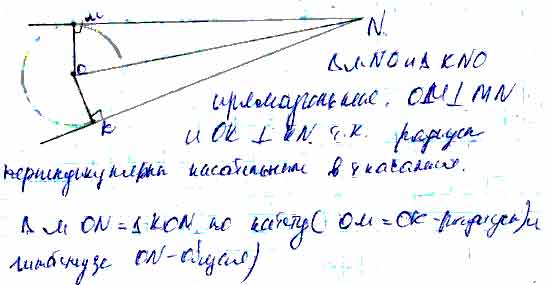 М
N
О
К
Δ MNO и Δ KNO
прямоугольные. OM ⊥ MN
и OK ⊥ KN т.к. радиусы
перпендикулярны касательным в т касания.
Δ MON = Δ KON по катету ( OM = OK - радиусы) и
гипотенузе ON - общая)